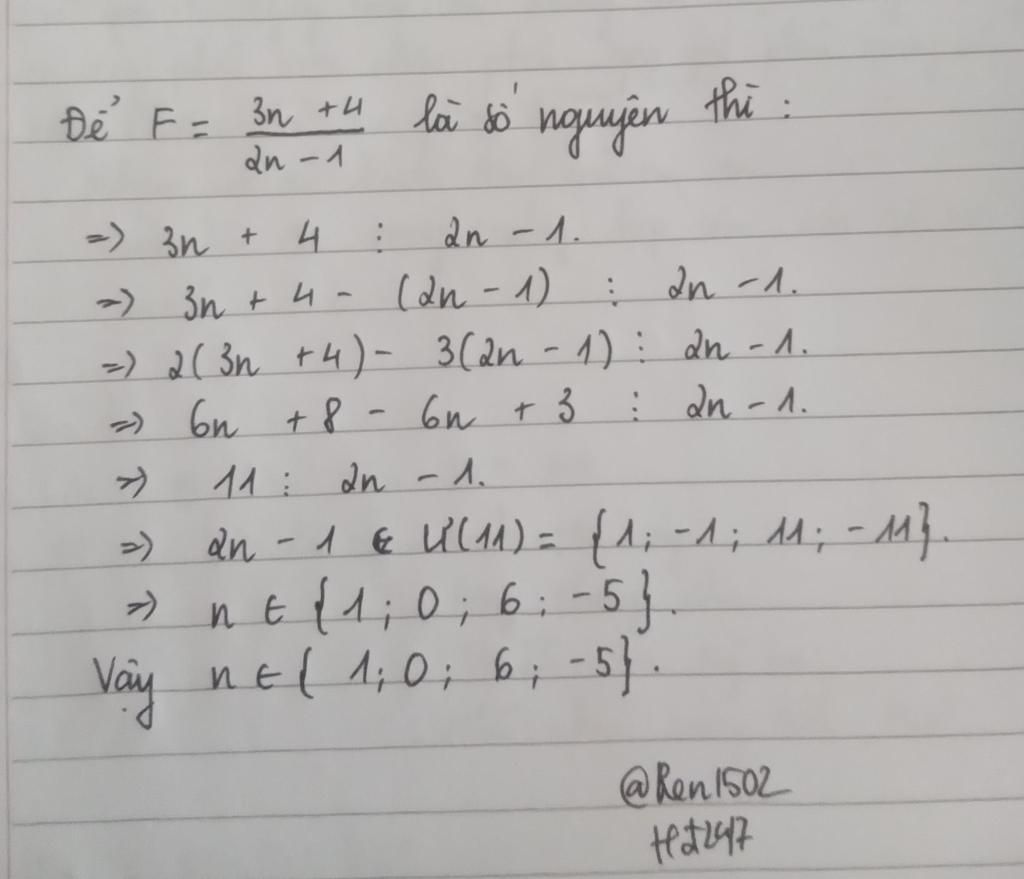 Để F = (3n + 4)/(2n - 1) là số nguyên thì :
=> 3n + 4 ⋮ 2n - 1.
=> 3n + 4 - (2n - 1) ⋮ 2n - 1.
=> 2(3n + 4) - 3(2n - 1) ⋮ 2n - 1.
=> 6n + 8 - 6n + 3 ⋮ 2n - 1.
=> 11 ⋮ 2n - 1.
=> 2n - 1 ∈ Ư(11) = {1; -1; 11; -11}.
=> n ∈ {1; 0; 6; -5}.
Vậy n ∈ { 1; 0; 6; -5}.
@Ren1502